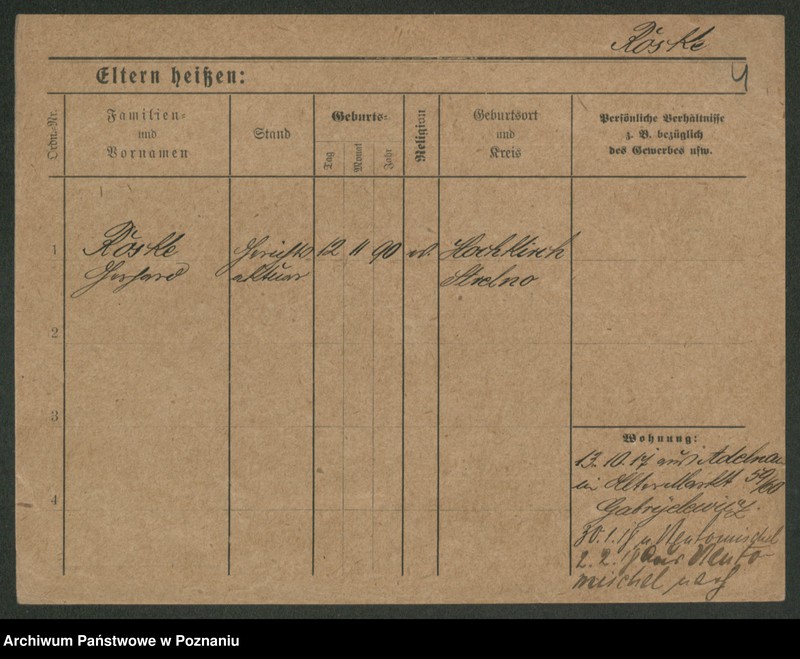 Röske
Eltern heißen:
4
Ordn.-Nr.
Familien-
und
Vornamen
Stand
Geburts-
Tag
Monat
Jahr
Religion
Geburtsort
und
Kreis
Persönliche Verhältnisse
z. B. bezüglich
des Gewerbes usw.
1
Röske
Gerhard
Gerichts
aktuar
12
11
90
ev.
Hochkirch
Strelno
2
3
4
Wohnung:
13.10.17 aus Adelnau
in Alter Markt 59/60
30.1.18 n Neutomischel
2.2.18 aus Neuto
mischel nach
Archiwum Państwowe w Poznaniu